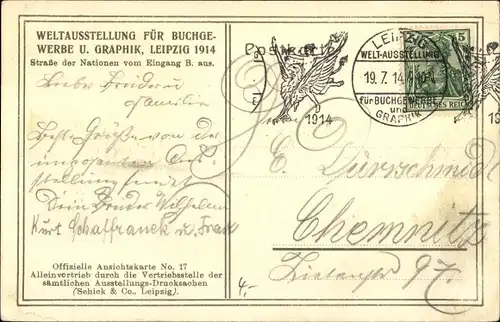 WELTAUSSTELLUNG FÜR BUCHGE-
WERBE U. GRAPHIK, LEIPZIG 1914
Straße der Nationen vom Eingang B. aus.
Postkarte
LEIPZIG
WELT-AUSSTELLUNG
19. 7. 14
für BUCHGEWERBE
und
GRAPHIK
1914
5
DEUTSCHES REICH
Lieber Bruder u
Familie
Beste Grüße von der
Aus-
stellung sendet
Dein Bruder Wilhelm
Kurt Schaffranek u. Frau
E. Dürrschmidt
Chemnitz
97.
Offizielle Ansichtskarte No. 17
Alleinvertrieb durch die Vertriebsstelle der
sämtlichen Ausstellungs-Drucksachen
(Schick & Co., Leipzig).
4,-